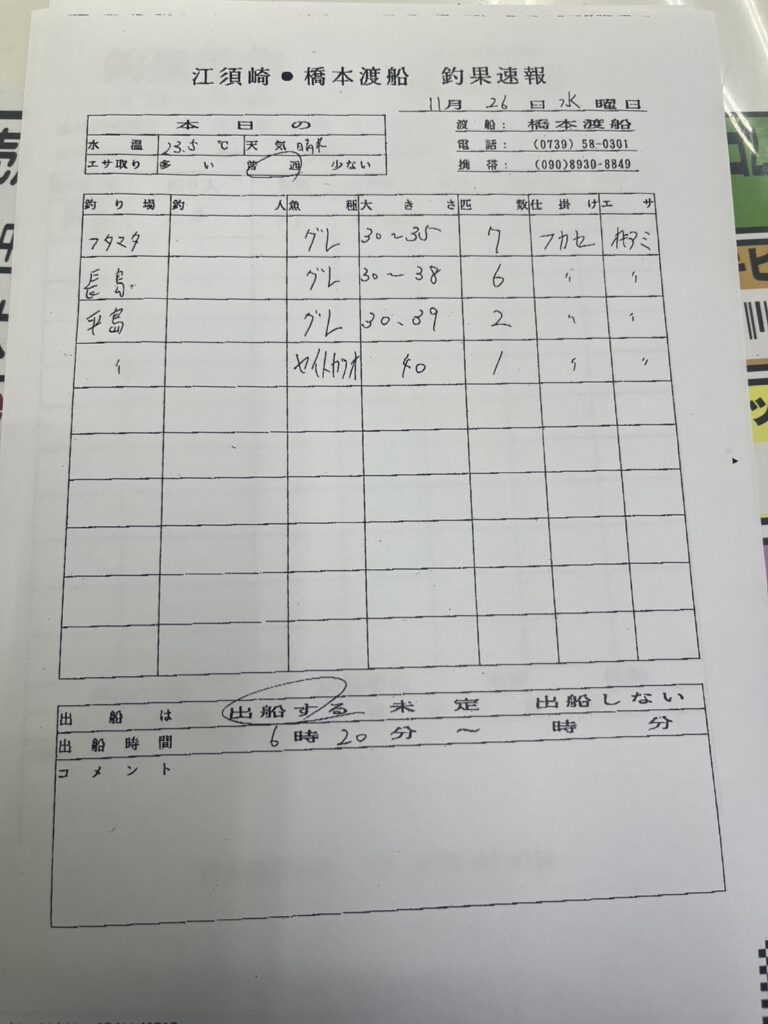 江須崎●橋本渡船 釣果速報
11月 26日 水曜日
本日の
水温 23.5℃ 天気 晴れ
エサ取り 多い 普通 少ない
渡船: 橋本渡船
電話: (0739) 58-0301
携帯: (090)8930-8849
釣り場 釣人 魚種 大きさ 匹数 仕掛け エサ
フタマタ グレ 30~35 7 フカセ オキアミ
長島 グレ 30~38 6 〃 〃
平島 グレ 30、39 2 〃 〃
〃 セイトカツオ 40 1 〃 〃
出船は 出船する 未定 出船しない
出船時間 6時20分~ 時 分
コメント